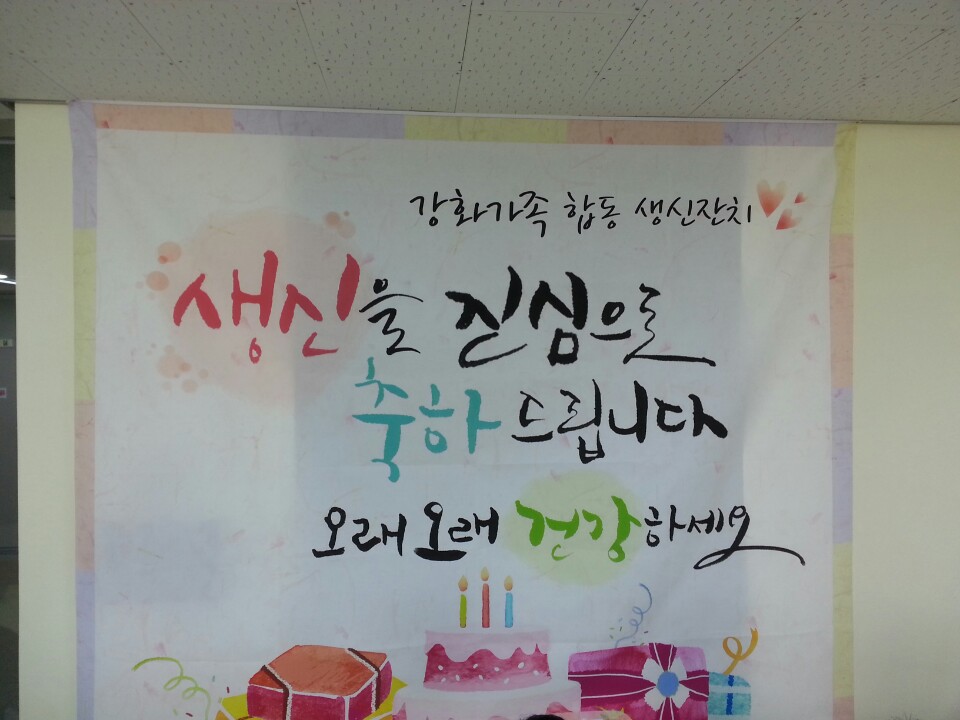 강화가족 합동 생신잔치
생신을 진심으로
축하 드립니다
오래 오래 건강하세요